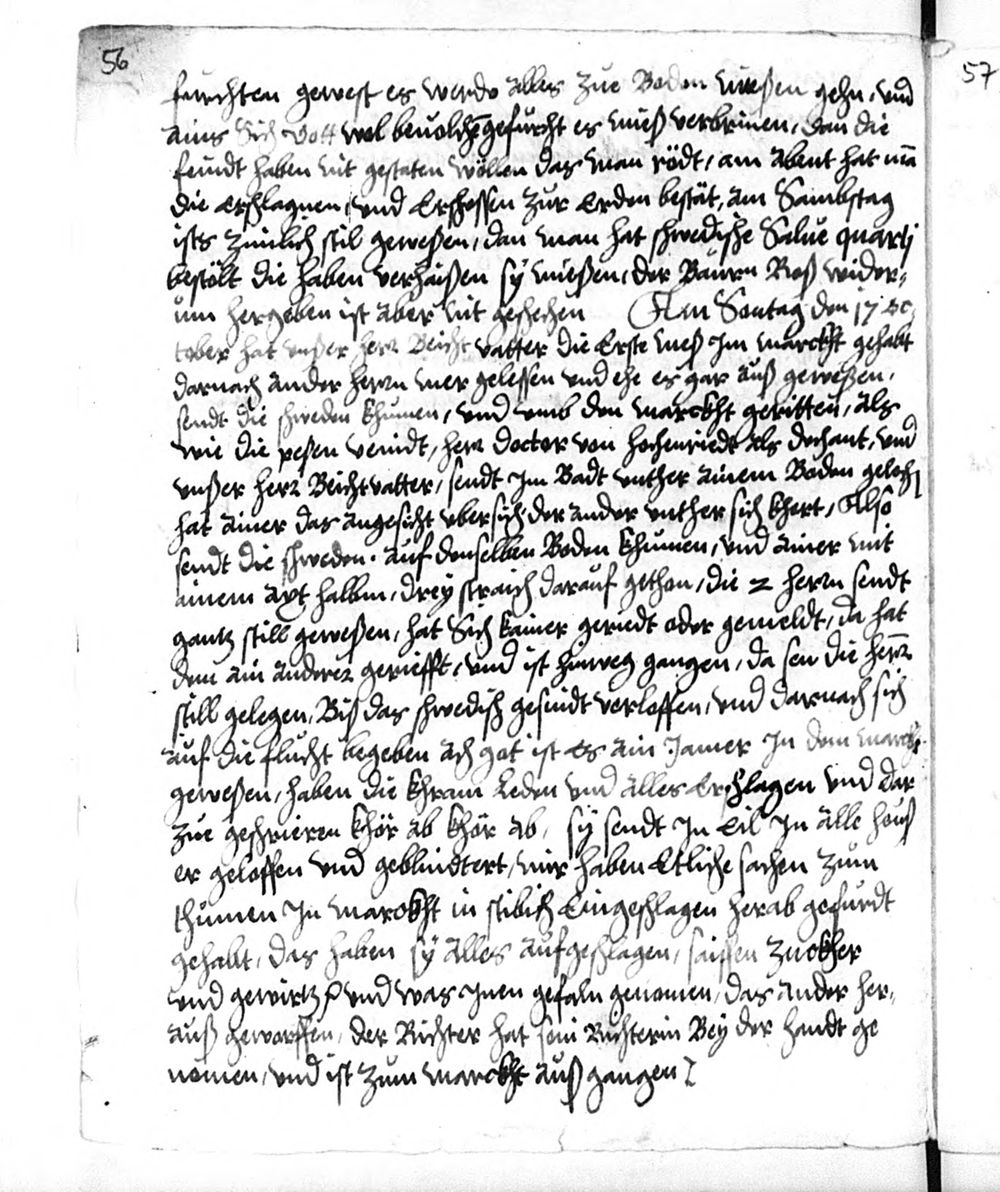 56
57
furchten gewest es werdt alles zue Boden mießen gehn, und
ains sich Gott wol beuolchē gefurcht es mieß verbrinen, dan die
feindt haben nit gestaten wöllen das man rödt, am abent hat mā
die erschlagnen, und Erschossen zur Erden bestät, am Sambstag
ists zimlich stil geweßen, dan man hat schwedische Salue quarti
bestölt die haben verhaißen sy mießen, der Baurn Roß wider-
um hergeben ist aber nit geschechen Am Sontag den 17 oc
tober hat unßer herr Beicht vatter die Erste meß Im marckht gehabt
darnach ander herrn mer gelessen und ehe es gar auß geweßen,
sendt die schweden khumen, und umb den marckht geritten, als
wie die peßen veindt, herr doctor von hochenriedt als dechant, und
unßer herr Beichtvatter, sendt Im Badt unther ainem Boden geleg
hat ainer das angesicht ubersich der ander unther sich khert, Also
sendt die schweden auf denselben Boden khumen, und ainer mit
ainem axt halbm, drey straich darauf gethon, die 2 herrn sendt
gantz still geweßen, hat Sich kainer geriedt oder gemeldt, da hat
dem ain anderer geriefft, und ist hinweg gangen, da sen die herr
still gelegen, Biß das schwedisch gesindt verloffen, und darnach sich
auf die flucht begeben ach got ist es ain Jamer In dem marckh
geweßen, haben die khram Leden und alles Erschlagen und dar
zue geschrieren khör ab khör ab, sy sendt In Eil In alle heuß
er geloffen und geblindtert, mir haben Etliche sachen zum
thumen In marckht in stibich Eingeschlagen herab gefurdt
gehabt, das haben sy alles aufgeschlagen, saiffen zuckher
und gewirtz und was Inen gefaln genomen, das ander her-
auß geworffen, der Richter hat sein Richterin Bey der handt ge
nomen, und ist zum marckht auß gangen